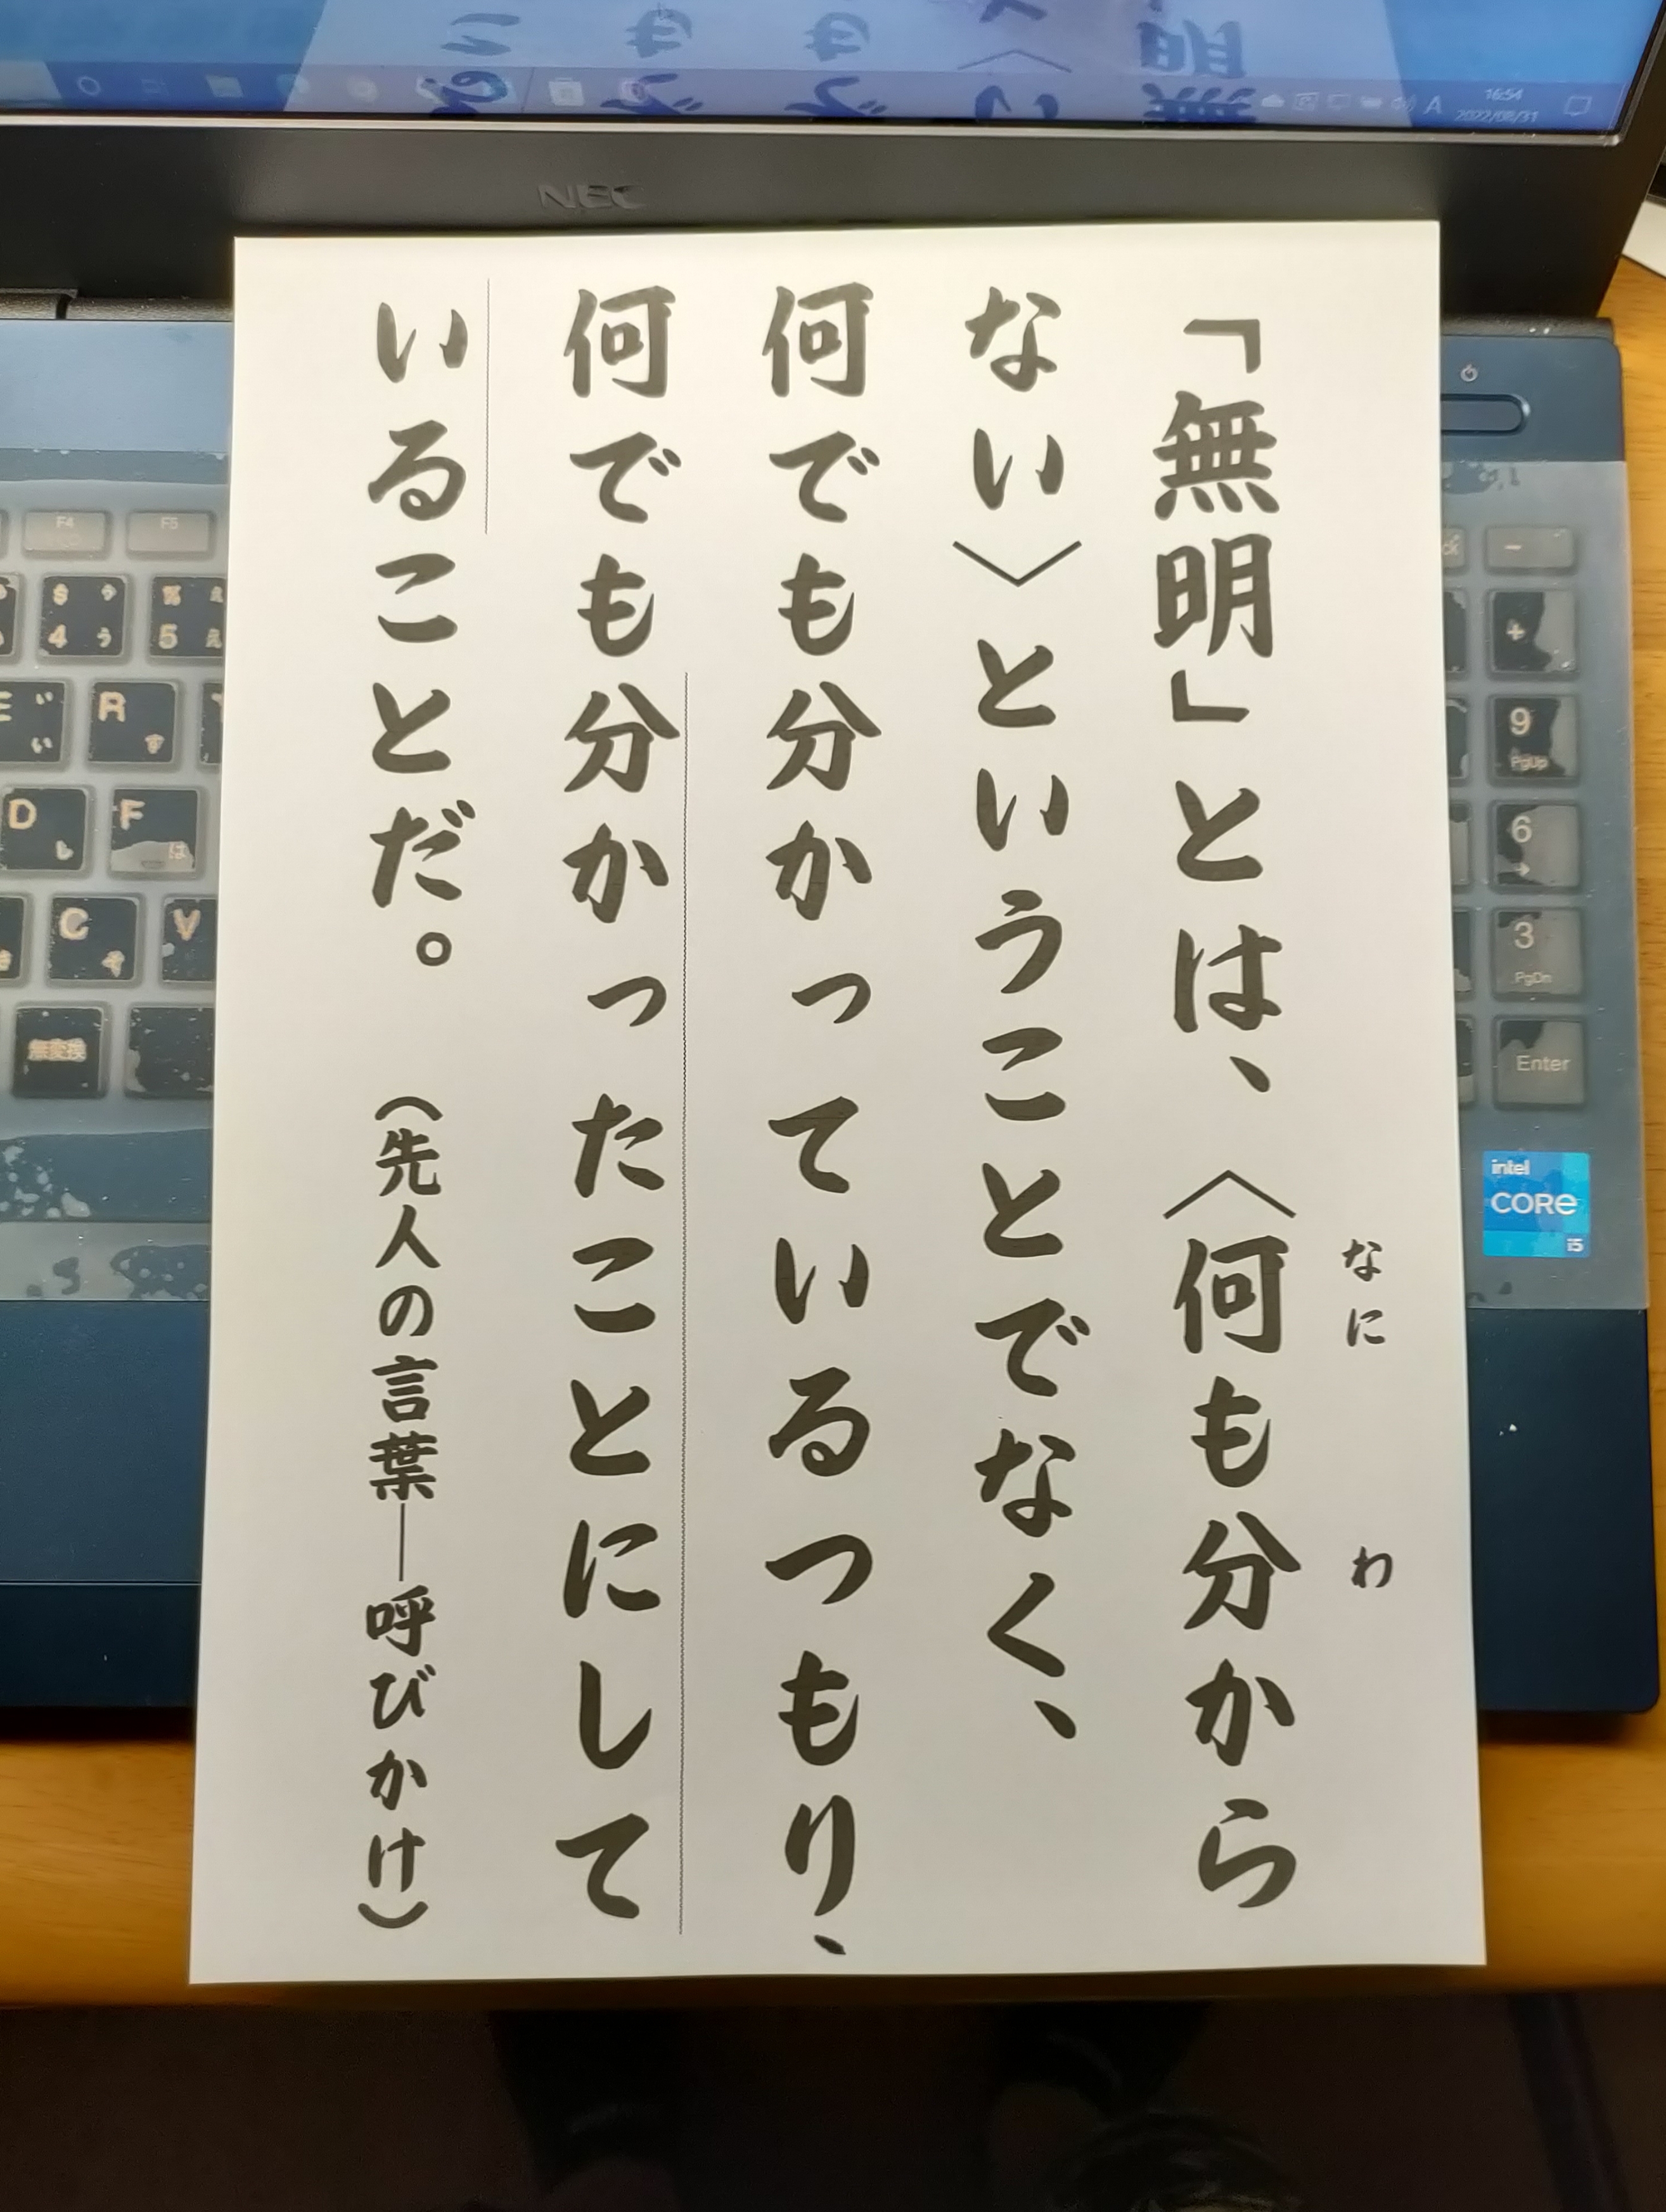 「無明」とは、〈何も分から
なに わ
ない〉ということでなく、
何でも分かっているつもり、
何でも分かったことにして
いることだ。 (先人の言葉―呼びかけ)
NEC
16:54
2022/08/31
A
F4
F5
$ う
4 う
% え
5 え
い
R
す
D
し
F
は
C
そ
V
無変換
+
9
PgUp
6
3
PgDn
Enter
intel
CORE
i5